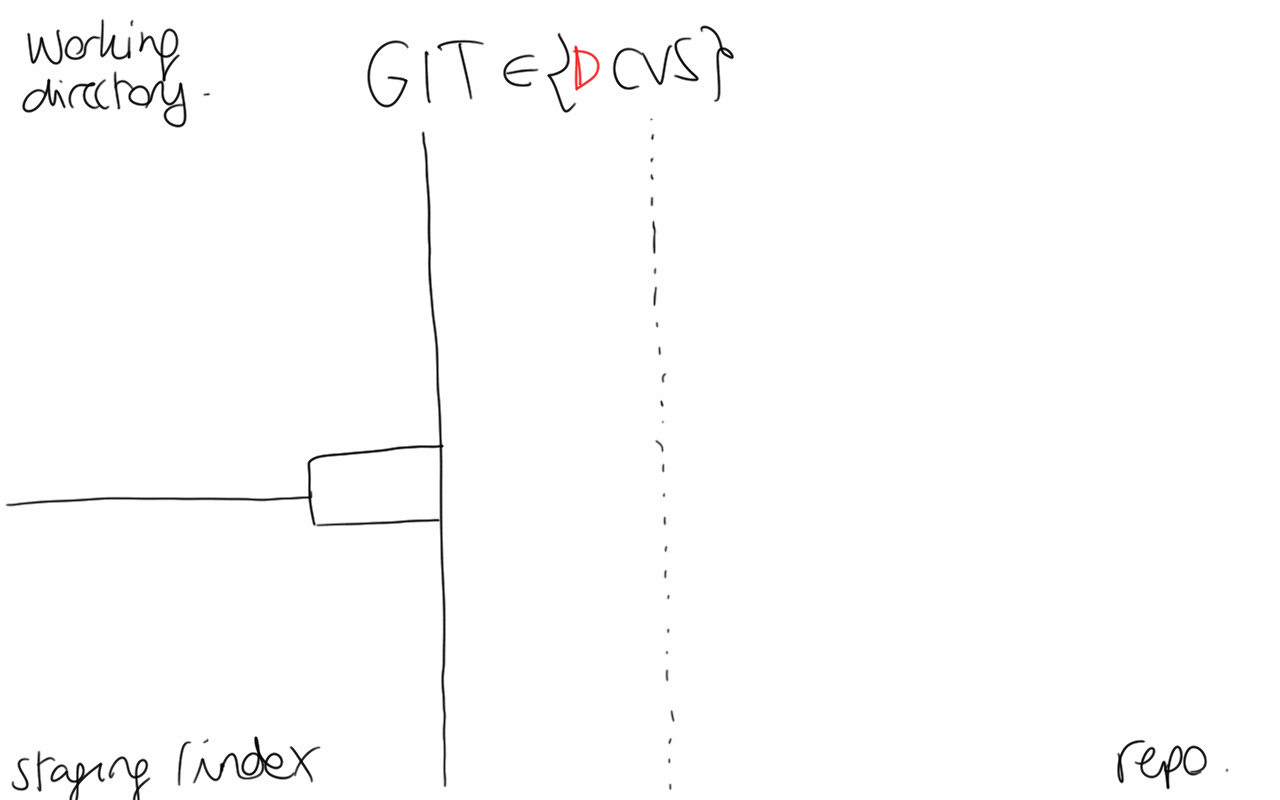 Working
directory.
GIT ∈ {DCVS}
staging / index
repo.